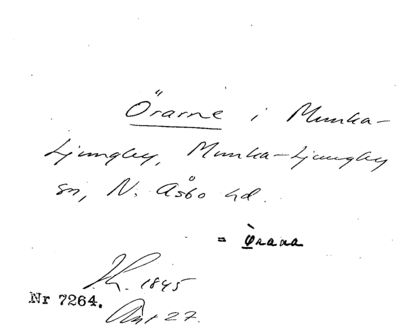 Örarne i Munka-
Ljungby, Munka-Ljungby
sn, N. Åsbo hd.
= Örana
1845
Nr 7264.
Akt 27.